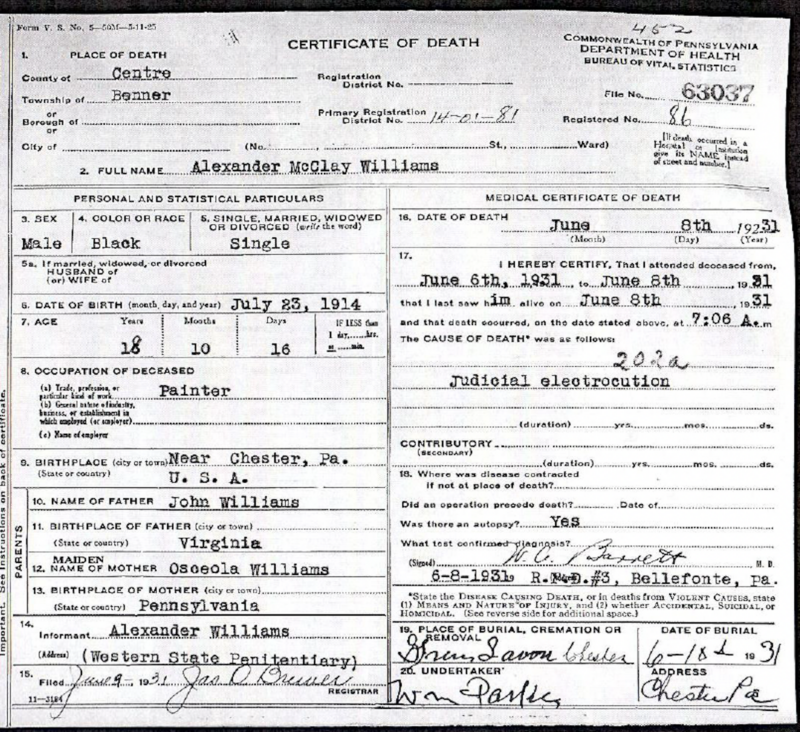 Form V. S. No. 5-50M-5-11-25
CERTIFICATE OF DEATH
452
COMMONWEALTH OF PENNSYLVANIA
DEPARTMENT OF HEALTH
BUREAU OF VITAL STATISTICS
1. PLACE OF DEATH
County of Centre
Registration District No.
File No. 63037
Township of Benner
or
Borough of
Primary Registration District No. 14-01-81
Registered No. 86
or
City of (No. St., Ward)
[If death occurred in a Hospital or Institution give its NAME instead of street and number.]
2. FULL NAME Alexander McClay Williams
PERSONAL AND STATISTICAL PARTICULARS
3. SEX Male
4. COLOR OR RACE Black
5. SINGLE, MARRIED, WIDOWED OR DIVORCED (write the word) Single
5a. If married, widowed, or divorced
HUSBAND of
(or) WIFE of
6. DATE OF BIRTH (month, day, and year) July 23, 1914
7. AGE Years Months Days IF LESS than
18 10 16 1 day, hrs.
or min.
8. OCCUPATION OF DECEASED
(a) Trade, profession, or particular kind of work Painter
(b) General nature of industry, business, or establishment in which employed (or employer)
(c) Name of employer
9. BIRTHPLACE (city or town) Near Chester, Pa.
(State or country) U. S. A.
PARENTS
10. NAME OF FATHER John Williams
11. BIRTHPLACE OF FATHER (city or town)
(State or country) Virginia
12. MAIDEN NAME OF MOTHER Osceola Williams
13. BIRTHPLACE OF MOTHER (city or town)
(State or country) Pennsylvania
14. Informant Alexander Williams
(Address) (Western State Penitentiary)
15. Filed June 9, 1931 Jas D Brewer
REGISTRAR
11-3184
MEDICAL CERTIFICATE OF DEATH
16. DATE OF DEATH June 8th 19231
(Month) (Day) (Year)
17. I HEREBY CERTIFY, That I attended deceased from,
June 6th, 1931 to June 8th 1931
that I last saw him alive on June 8th 1931
and that death occurred, on the date stated above, at 7:06 A.m
The CAUSE OF DEATH* was as follows:
202a
Judicial electrocution
(duration) yrs. mos. ds.
CONTRIBUTORY
(SECONDARY)
(duration) yrs. mos. ds.
18. Where was disease contracted
if not at place of death?
Did an operation precede death? Date of
Was there an autopsy? Yes
What test confirmed diagnosis?
(Signed) W. C. Barrett M. D.
6-8-1931 R. D. #3, Bellefonte, pa.
*State the DISEASE CAUSING DEATH, or in deaths from VIOLENT CAUSES, state
(1) MEANS AND NATURE OF INJURY, and (2) whether ACCIDENTAL, SUICIDAL, or
HOMICIDAL. (See reverse side for additional space.)
19. PLACE OF BURIAL, CREMATION OR REMOVAL
Chester
DATE OF BURIAL
1931
20. UNDERTAKER
Wm Parker
ADDRESS
Chester Pa
Important. See instructions on back of certificate.